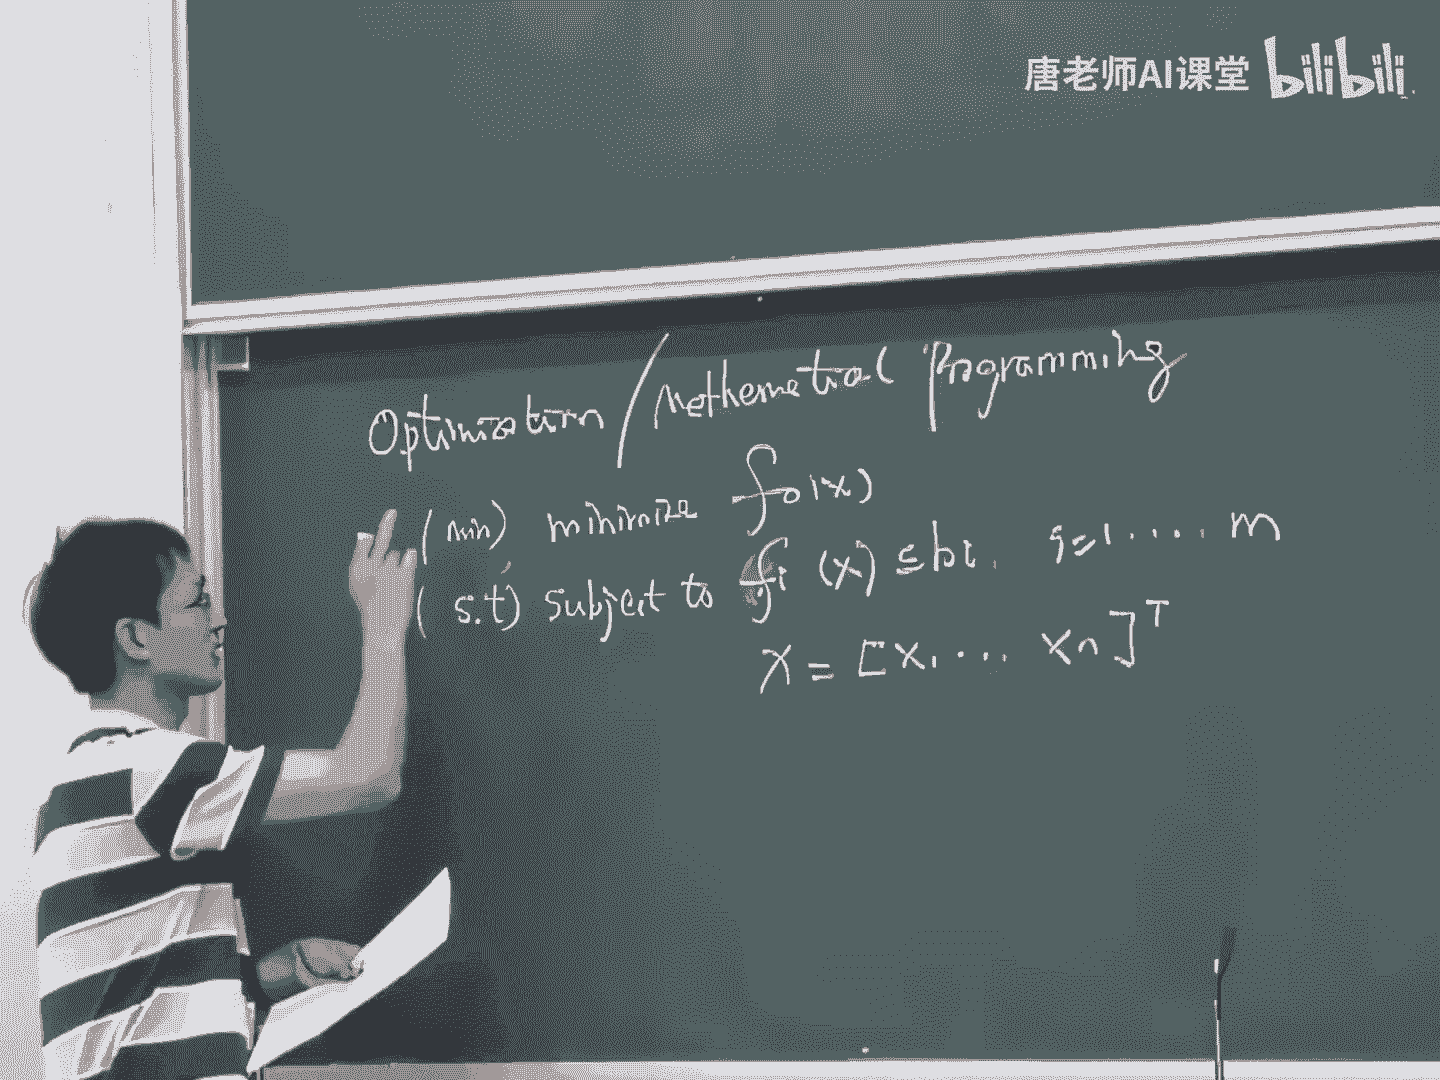 唐老师AI课堂 bilibili
Optimization / Mathematical Programming
(min) minimize fo(x)
(s.t) subject to fi (x) ≤ bi. i=1.... m
X = [X1.... Xn]ᵀ